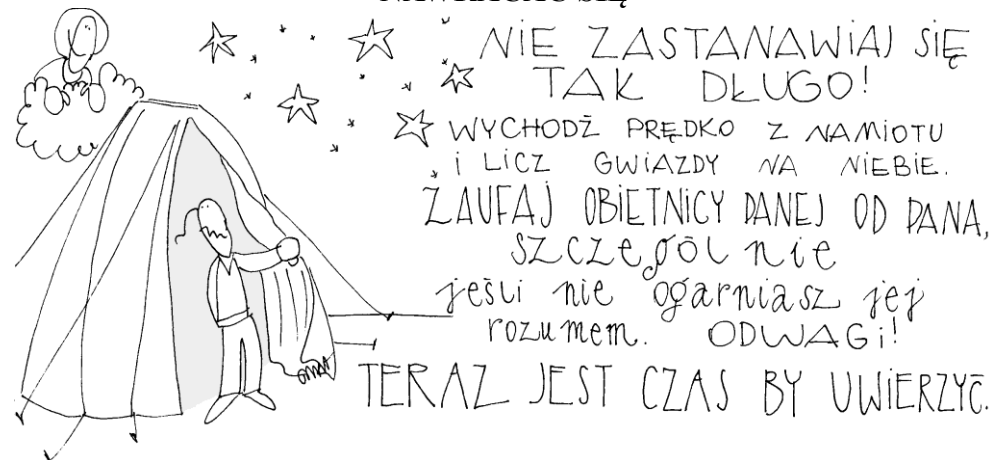 NAWRACAĆ SIĘ
NIE ZASTANAWIAJ SIĘ
TAK DŁUGO!
WYCHODŹ PRĘDKO Z NAMIOTU
I LICZ GWIAZDY NA NIEBIE.
ZAUFAJ OBIETNICY DANEJ OD PANA,
SZCZEGÓLNIE
jeśli nie ogarniasz jej
rozumem. ODWAGI!
TERAZ JEST CZAS BY UWIERZYĆ.